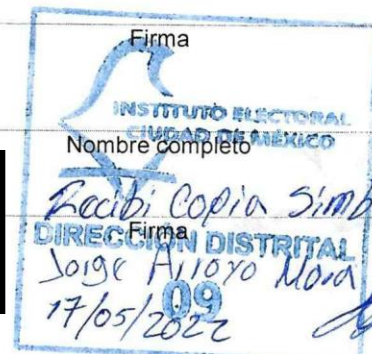 Firma
INSTITUTO ELECTORAL
CIUDAD DE MÉXICO
Nombre completo
Recibi Copia Simb
Firma
DIRECCIÓN DISTRITAL
Jorge Arroyo Mora
09
17/05/2022